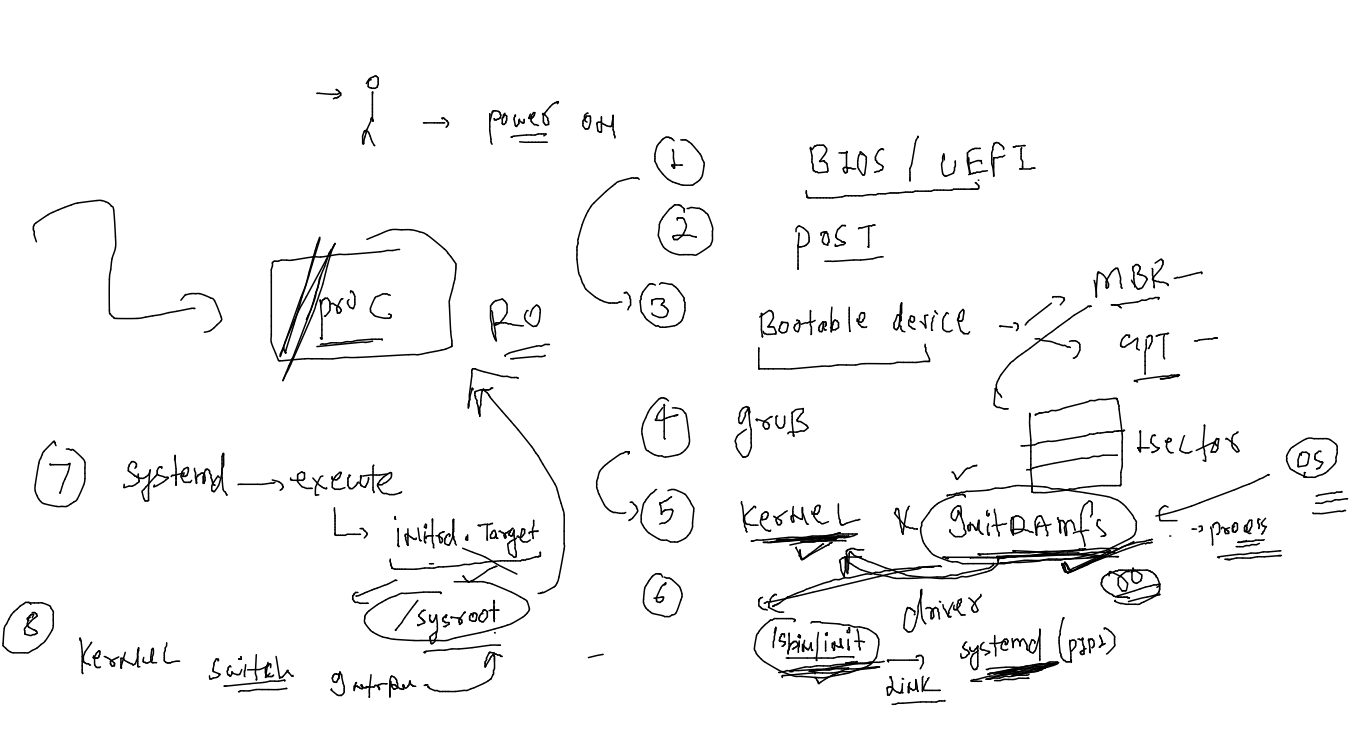 → → power ON
1 BIOS / UEFI
2 POST
3 Bootable device → MBR -
GPT -
proc RO
4 gruB
1 sector
OS
5 KerNEL & InitRAMfs → process
ro
6 driver
/sbin/init → systemd (PID1)
Link
7 systemd → execute
initrd.Target
/sysroot
8 KerNEL switch